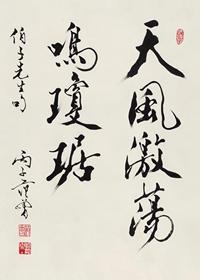 天風激蕩
鳴瓊琚
伯子先生句
丙子范曾